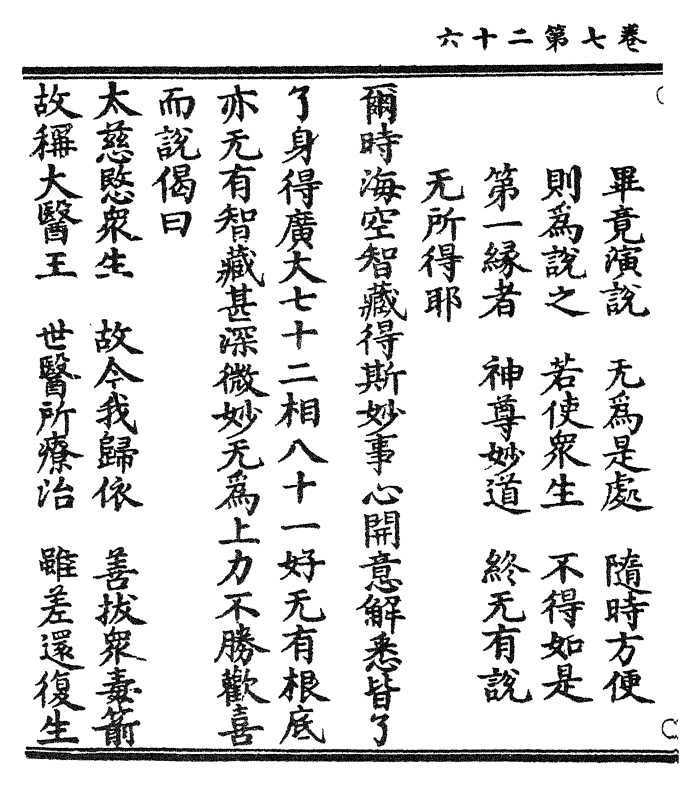 卷七第二十六
畢竟演說　无爲是處　隨時方便
則爲說之　若使衆生　不得如是
第一緣者　神尊妙道　終无有說
无所得耶
爾時海空智藏得斯妙事心開意解悉皆了
了身得廣大七十二相八十一好无有根底
亦无有智藏甚深微妙无爲上力不勝歡喜
而說偈曰
太慈愍衆生　故令我歸依　善拔衆毒箭
故稱大醫王　世醫所療治　雖差還復生